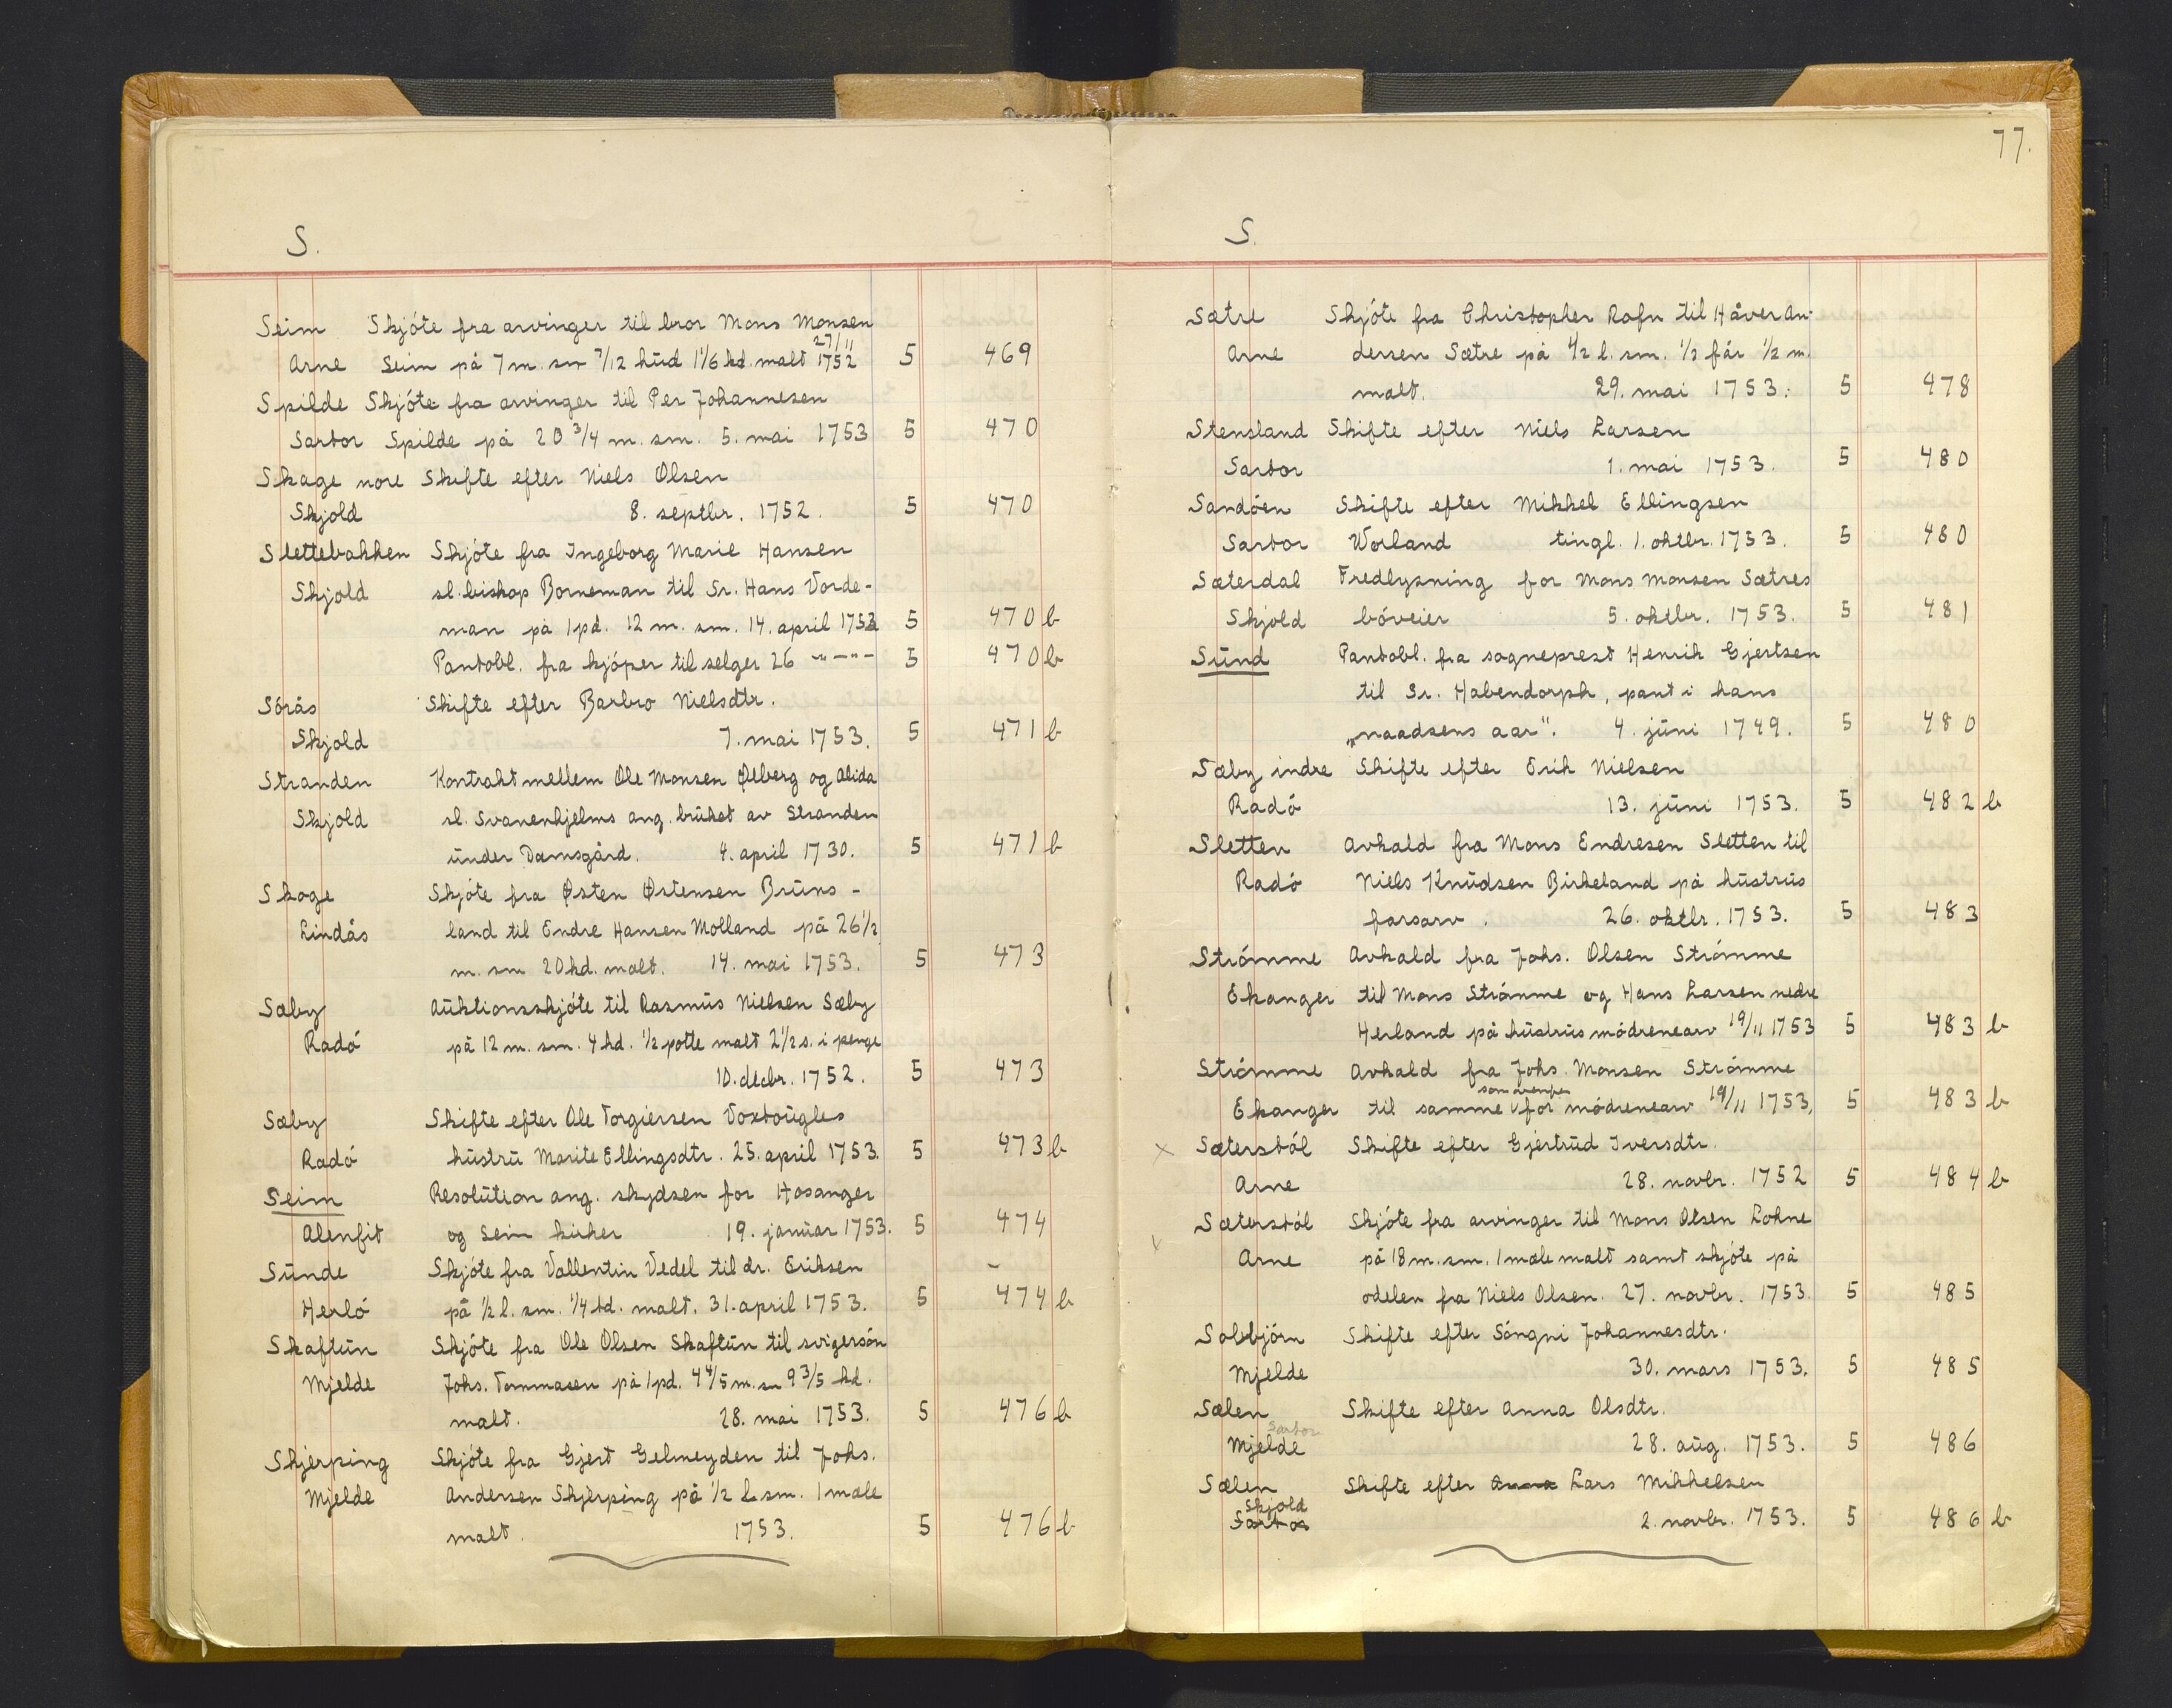 S.
Seim Skjóte fra arvinger til bror Mons Monsen
27/11
Arne Seim på 7 m. sm 7/12 hud 1 1/6 hd. malt 1752 5 469
Spilde Skjóte fra arvinger til Per Johannesen
Sartor Spilde på 20 3/4 m. sm. 5. mai 1753 5 470
Skage nore Skifte efter Niels Olsen
Skjold 8. septbr. 1752. 5 470
Slettebakken Skjóte fra Ingeborg Marie Hansen
Skjold sl. biskop Borneman til Sr. Hans Vorde-
man på 1 pd. 12 m. sm. 14. april 1753 5 470 b
Pantobl. fra kjóper til selger 26 -"-"- 5 470 b
Sórås Skifte efter Barbro Nielsdtr.
Skjold 7. mai 1753. 5 471 b
Stranden Kontrakt mellem Ole Monsen Ølberg og Alida
Skjold sl. Svanenhjelms ang. brūket av Stranden
ūnder Damsgård. 4. april 1730. 5 471 b
Skoge Skjóte fra Østen Østensen Brūns-
Lindås land til Endre Hansen Molland på 26 1/2
m. sm 20 hd. malt. 14. mai 1753. 5 473
Sæby Aūktionsskjóte til Rasmūs Nielsen Sæby
Radó på 12 m. sm. 4 hd. 1/2 potte malt 2 1/2 s. i penge
10. decbr. 1752. 5 473
Sæby Skifte efter Ole Torgiersen Voxtoūgles
Radó hūstrū Marite Ellingsdtr. 25. april 1753. 5 473 b
Seim Resolūtion ang. skydsen for Hosanger
Alenfit og Seim kirker 19. janūar 1753. 5 474
Sūnde Skjóte fra Vallentin Vedel til dr. Eriksen
Herló på 1/2 l. sm. 1/4 td. malt. 31. april 1753. 5 474 b
Skaftūn Skjóte fra Ole Olsen Skaftūn til svigersón
Mjelde Johs. Tommasen på 1 pd. 4 4/5 m. sm 9 3/5 hd.
malt. 28. mai 1753. 5 476 b
Skjerping Skjóte fra Gjert Gelmeyden til Johs.
Mjelde Andersen Skjerping på 1/2 l. sm. 1 mæle
malt. 1753. 5 476 b
77.
S.
Sætre Skjóte fra Christopher Rafn til Håver An-
Arne dersen Sætre på 1/2 l. sm. 1/2 får 1/2 m.
malt. 29. mai 1753. 5 478
Stensland Skifte efter Niels Larsen
Sartor 1. mai 1753. 5 480
Sandóen Skifte efter Mikkel Ellingsen
Sartor Worland tingl. 1. oktbr. 1753. 5 480
Sæterdal Fredlysning for Mons Monsen Sætres
Skjold bóveier 5. oktbr. 1753. 5 481
Sūnd Pantobl. fra sogneprest Henrik Gjertsen
til Sr. Habendorph, pant i hans
„naadsens aar". 4. jūni 1749. 5 480
Sæby indre Skifte efter Erik Nielsen
Radó 13. jūni 1753. 5 482 b
Sletten Avkald fra Mons Endresen Sletten til
Radó Niels Knūdsen Birkeland på hūstrūs
farsarv. 26. oktbr. 1753. 5 483
Strómme Avkald fra Johs. Olsen Strómme
Ekanger til Mons Strómme og Hans Larsen nedre
Herland på hūstrūs módrenearv 19/11 1753 5 483 b
Strómme Avkald fra Johs. Monsen Strómme
som ovenfor
Ekanger til samme v for módrenearv 19/11 1753, 5 483 b
x Sæterstól Skifte efter Gjertrūd Iversdtr.
Arne 28. novbr. 1752 5 484 b
Sæterstól Skjóte fra arvinger til Mons Olsen Lohne
v Arne på 18 m. sm. 1 mæle malt samt skjóte på
odelen fra Niels Olsen. 27. novbr. 1753. 5 485
Solbjórn Skifte efter Sóngni Johannesdtr.
Mjelde 30. mars 1753. 5 485
Sælen Skifte efter Anna Olsdtr.
Sartor
Mjelde 28. aūg. 1753. 5 486
Sælen Skifte efter Anna Lars Mikkelsen
Skjold
Sartor 2. novbr. 1753. 5 486 b